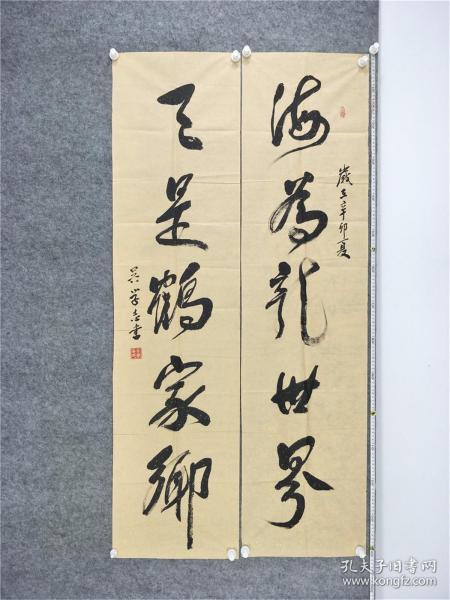 海為龍世界
歲在辛卯夏
天是鶴家鄉
學志書
孔夫子旧书网
www.kongfz.com